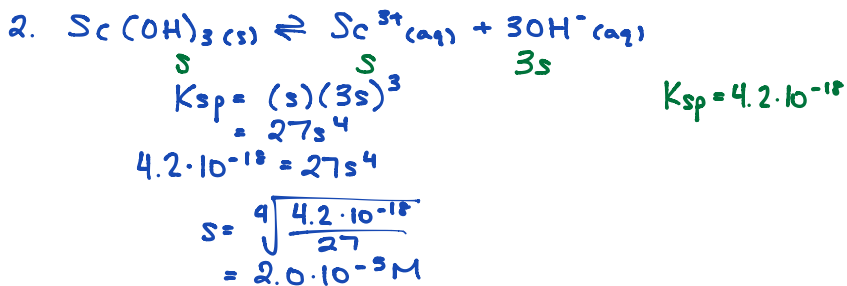 2. Sc(OH)₃ (s) ⇌ Sc³⁺ (aq) + 3OH⁻ (aq)
s s 3s
Ksp = (s)(3s)³
Ksp = 4.2·10⁻¹⁸
= 27s⁴
4.2·10⁻¹⁸ = 27s⁴
s = ⁴√(4.2·10⁻¹⁸ / 27)
= 2.0·10⁻⁵ M